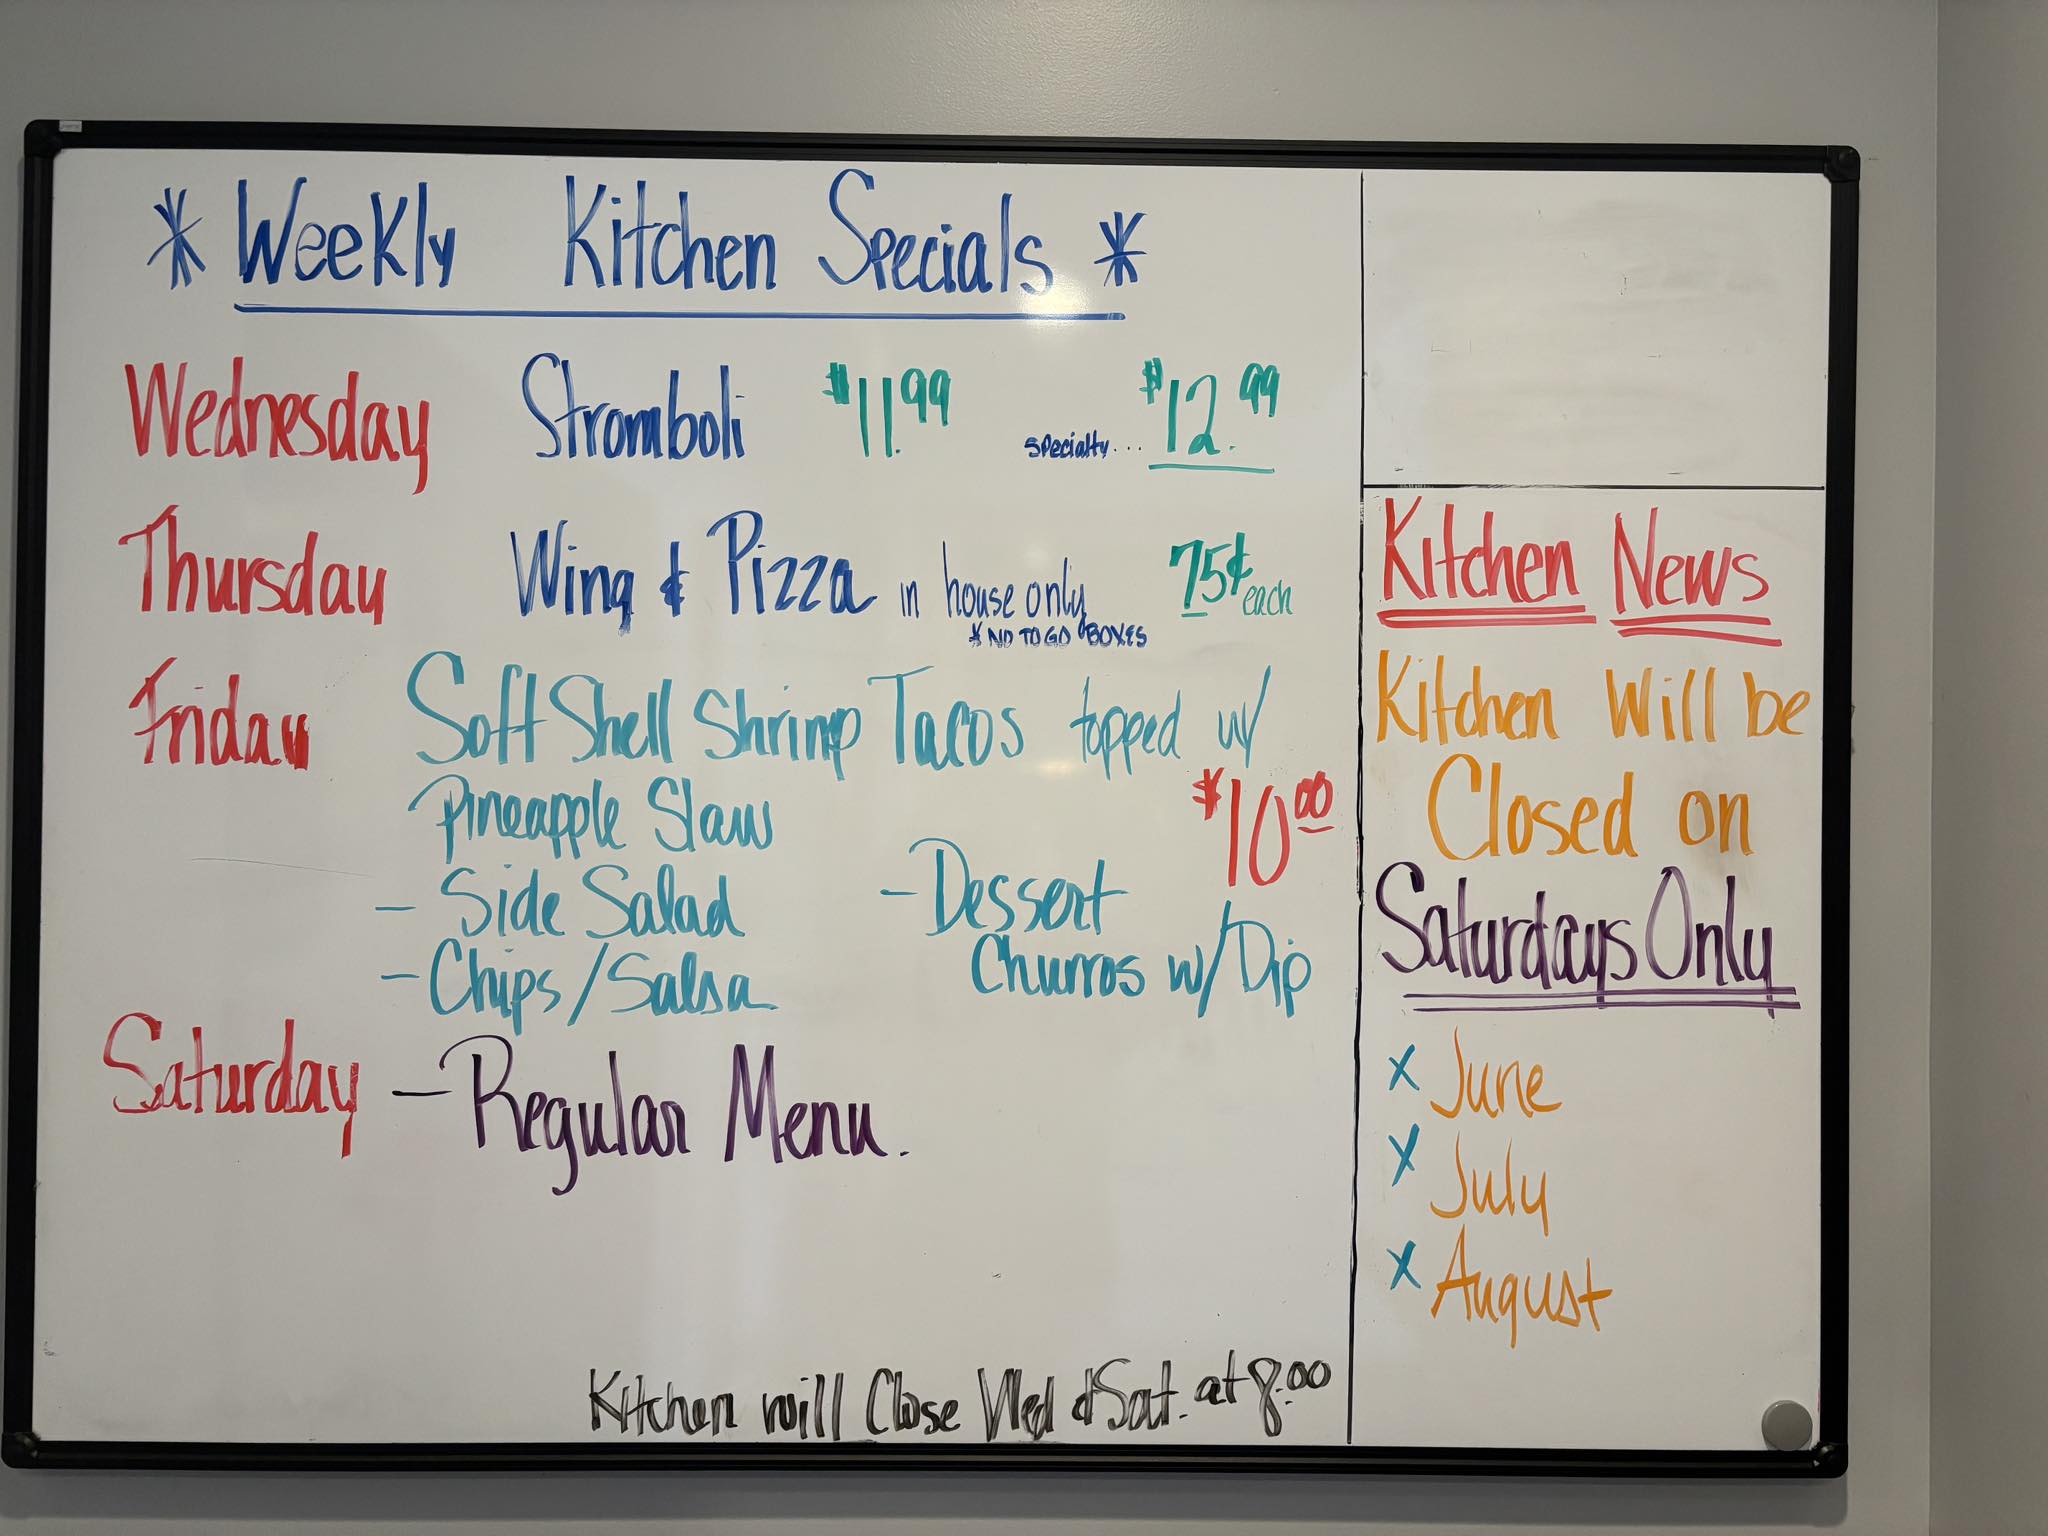 * Weekly Kitchen Specials *
Wednesday Stromboli $11.99 specialty... $12.99
Thursday Wing & Pizza in house only 75¢ each
* NO TO GO BOXES
Friday Soft Shell Shrimp Tacos topped w/
Pineapple Slaw $10.00
- Side Salad - Dessert
- Chips/Salsa Churros w/Dip
Saturday - Regular Menu.
Kitchen will Close Wed & Sat. at 8:00
Kitchen News
Kitchen Will be
Closed on
Saturdays Only
x June
x July
x August